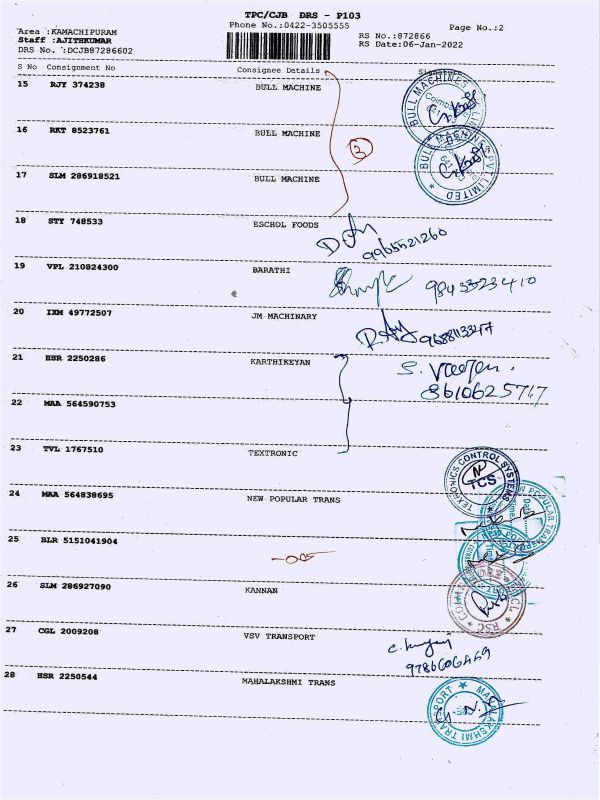 TPC/CJB DRS - P103
Phone No.:0422-3505555
Page No.:2
Area :KAMACHIPURAM
Staff :AJITHKUMAR
DRS No. :DCJB87286602
RS No.:872866
RS Date:06-Jan-2022
S No Consignment No Consignee Details Signature
15 RJY 374238 BULL MACHINE
16 RKT 8523761 BULL MACHINE
3
17 SLM 286918521 BULL MACHINE
18 STY 748533 ESCHOL FOODS
9965521260
19 VPL 210824300 BARATHI
9843323410
20 IXM 49772507 JM MACHINARY
21 HSR 2250286 KARTHIKEYAN
8610625717
22 MAA 564590753
23 TVL 1767510 TEXTRONIC
TEXRONICS CONTROL SYSTEMS
TCS
24 MAA 564838695 NEW POPULAR TRANS
25 BLR 5151041904
26 SLM 286927090 KANNAN
27 CGL 2009208 VSV TRANSPORT
28 HSR 2250544 MAHALAKSHMI TRANS